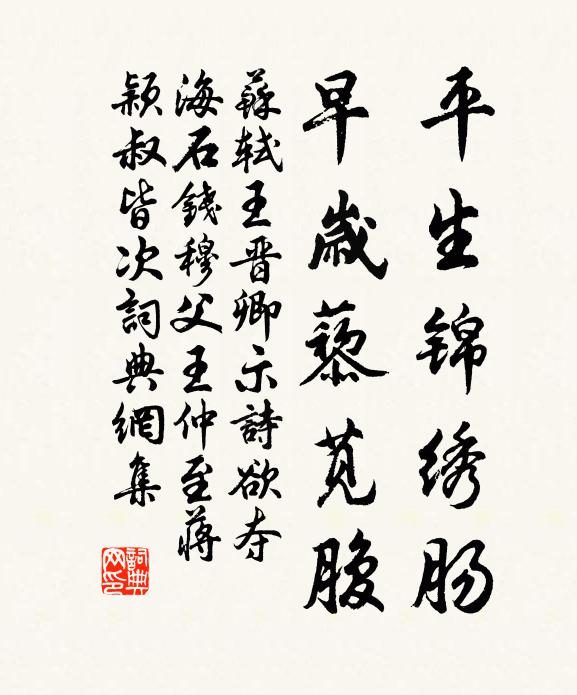 平生锦绣肠
早歲藜莧腹
蘇軾王晋卿示詩欲夺
海石錢穆父王仲至蔣
穎叔皆次詞典網集
詞典
网印